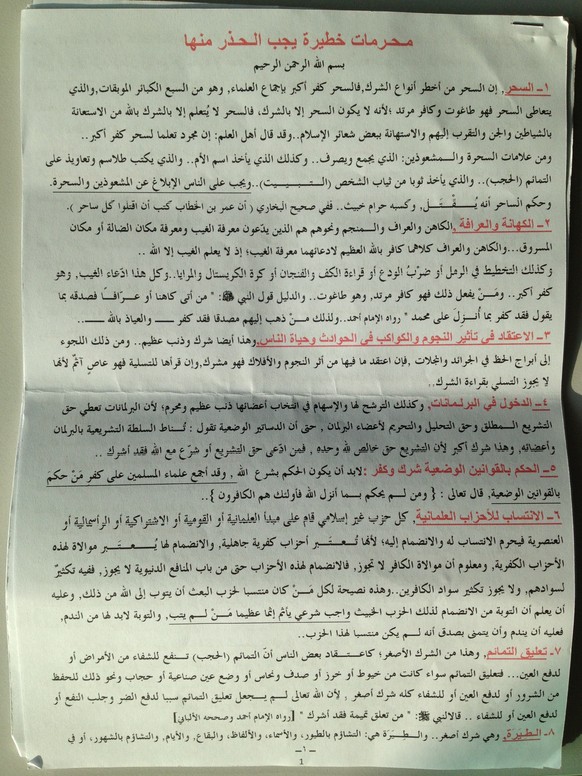 محرمات خطيرة يجب الحذر منها
بسم الله الرحمن الرحيم
١ـ السحر, إن السحر من أخطر أنواع الشرك,فالسحر كفر أكبر بإجماع العلماء, وهو من السبع الكبائر الموبقات,والذي
يتعاطى السحر فهو طاغوت وكافر مرتد ؛لأنه لا يكون السحر إلا بالشرك, فالسحر لا يُتعلم إلا بالشرك بالله من الاستعانة
بالشياطين والجن والتقرب إليهم والاستهانة ببعض شعائر الإسلام..وقد قال أهل العلم: إن مجرد تعلما لسحر كفر أكبر..
ومن علامات السحرة والـمشعوذين: الذي يجمع ويصرف.. وكذلك الذي يأخذ اسم الأم.. والذي يكتب طلاسم وتعاويذ على
التمائم (الحجب).. والذي يأخذ ثوبا من ثياب الشخص (التـــبـييت)..ويجب على الناس الإبلاغ عن المشعوذين والسحرة.
وحكم الساحر أنه يُــقْــتَــل, وكسبه حرام خبيث.. ففي صحيح البخاري ( أن عمر بن الخطاب كتب أن اقتلوا كل ساحر ).
٢ـ الكهانة والعرافة ,الكاهن والعراف والـمنجم ونحوهم هم الذين يدّعون معرفة الغيب ومعرفة مكان الضالة أو مكان
المسروق...والكاهن والعراف كلاهما كافر بالله العظيم لادعائهما معرفة الغيب؛ إذ لا يعلم الغيب إلا الله ..
وكذلك التخطيط في الرمل أو ضربُ الودع أو قراءة الكف والفنجان أو كرة الكريستال والمرايا..وكل هذا ادّعاء الغيب, وهو
كفر أكبر.. ومَـنْ يفعل ذلك فهو كافر مرتد, وهو طاغوت.. والدليل قول النبي ﷺ: " من أتى كاهنا أو عـرّافـا فصدقه بما
يقول فقد كفر بما أُنــزلَ على محمد " رواه الإمام أحمد..ولذلك مـنْ ذهب إليهم مصدقا فقد كفر ــــ والعياذ بالله ــــ..
٣ـ الاعتقاد في تأثير النجوم والكواكب في الحوادث وحياة الناس,وهذا أيضا شرك وذنب عظيم.. ومن ذلك اللجوء
إلى أبراج الحظ في الجرائد والمجلات ,فإن اعتقد ما فيها من أثر النجوم والأفلاك فهو مشرك,وإن قرأها للتسلية فهو عاصٍ آثمٌ لأنها
لا يجوز التسلي بقراءة الشرك..
٤ـ الدخول في البرلـمانات, وكذلك الترشح لها والإسهام في انتخاب أعضائها ذنب عظيم ومحرم؛ لأن البرلمانات تعطي حق
التشريع الـمطلق وحق التحليل والتحريم لأعضاء البرلمان , حتى أن الدساتير الوضعية تقول : تُـناط السلطة التشريعية بالبرلمان
وأعضائه, وهذا شرك أكبر لأن التشريع حق خالص لله وحده , فمن ادّعى حق التشريع أو شرّع مع الله فقد أشرك ..
٥ـ الحكم بالقوانين الوضعية شرك وكفر :لابد أن يكون الحكم بشرع الله , وقد أجمع علماء المسلمين على كفر مَنْ حكمَ
بالقوانين الوضعية, قال تعالى : { ومن لـم يحكم بـما أنزل الله فأولئك هم الكافرون }..
٦ـ الانتساب للأحزاب العلمانية, كل حزب غير إسلامي قام على مبدأ العلمانية أو القومية أو الاشتراكية أو الرأسمالية أو
العنصرية فيحرم الانتساب له والانضمام إليه؛ لأنها تُـعـتــبَـر أحزاب كفرية جاهلية, والانضمام لها يُـعـتـبَـر موالاة لهذه
الأحزاب الكفرية, ومعلوم أن موالاة الكافر لا تجوز, فالانضمام لهذه الأحزاب حتى من باب المنافع الدنيوية لا يجوز, ففيه تكثيرٌ
لسوادهم, ولا يجوز تكثير سواد الكافرين..وهذه نصيحة لكل مَـنْ كان منتسبا لحزب البعث أن يتوب إلى الله من ذلك, وعليه
أن يعلم أن التوبة من الانضمام لذلك الحزب الخبيث واجب شرعي يأثم إثما عظيما مَـنْ لـم يتب, والتوبة لابد لها من الندم,
فعليه أن يندم وأن يتمنى بصدق أنه لـم يكن منتسبا لهذا الحزب..
٧ـ تعليق التمائم, وهذا من الشرك الأصغر؛ كاعـتـقـاد بعض الناس أنّ التمائم (الحجب) تـنفع للشفاء من الأمراض أو
لدفع العين... فتعليق التمائم سواء كانت من خيوط أو خرز أو صدف ونحاس أو وضع عين صناعية أو حجاب ونحو ذلك للحفظ
من الشرور أو لدفع العين أو للشفاء كله شرك أصغر , لأن الله تعالى لم يـجعل تعليق التمائم سببا لدفع الضر وجلب النفع أو
لدفع العين أو للشفاء .. قالالنبي ﷺ: " من تعلق تميمة فقد أشرك " [رواه الإمام أحمد وصححه الألباني]
٨ـ الـطـيـرة, وهي شرك أصغر.. والـطِـيـَرة هي: التشاؤم بالطيور, والأسماء, والألفاظ, والبقاع, والأيام, والتشاؤم بالشهور, أو في
ـ١ـ
1